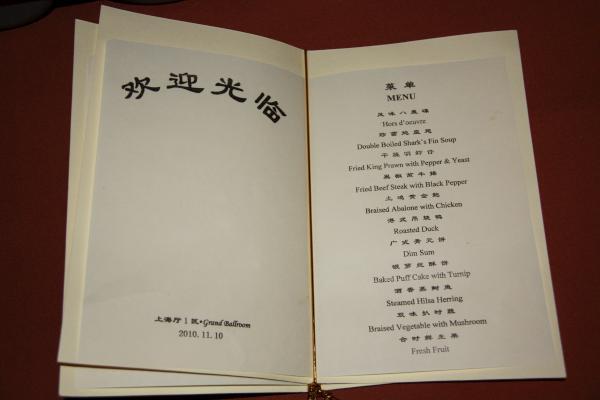 欢迎光临
上海厅1区•Grand Ballroom
2010.11.10
菜单
MENU
Hors d'oeuvre
Double Boiled Shark's Fin Soup
Fried King Prawn with Pepper & Yeast
黑椒煎牛排
Fried Beef Steak with Black Pepper
上鸡黄金鲍
Braised Abalone with Chicken
港式吊烧鸭
Roasted Duck
Dim Sum
银萝丝酥饼
Baked Puff Cake with Turnip
酒香蒸鲥鱼
Steamed Hilsa Herring
双味扒时蔬
Braised Vegetable with Mushroom
合时鲜生果
Fresh Fruit